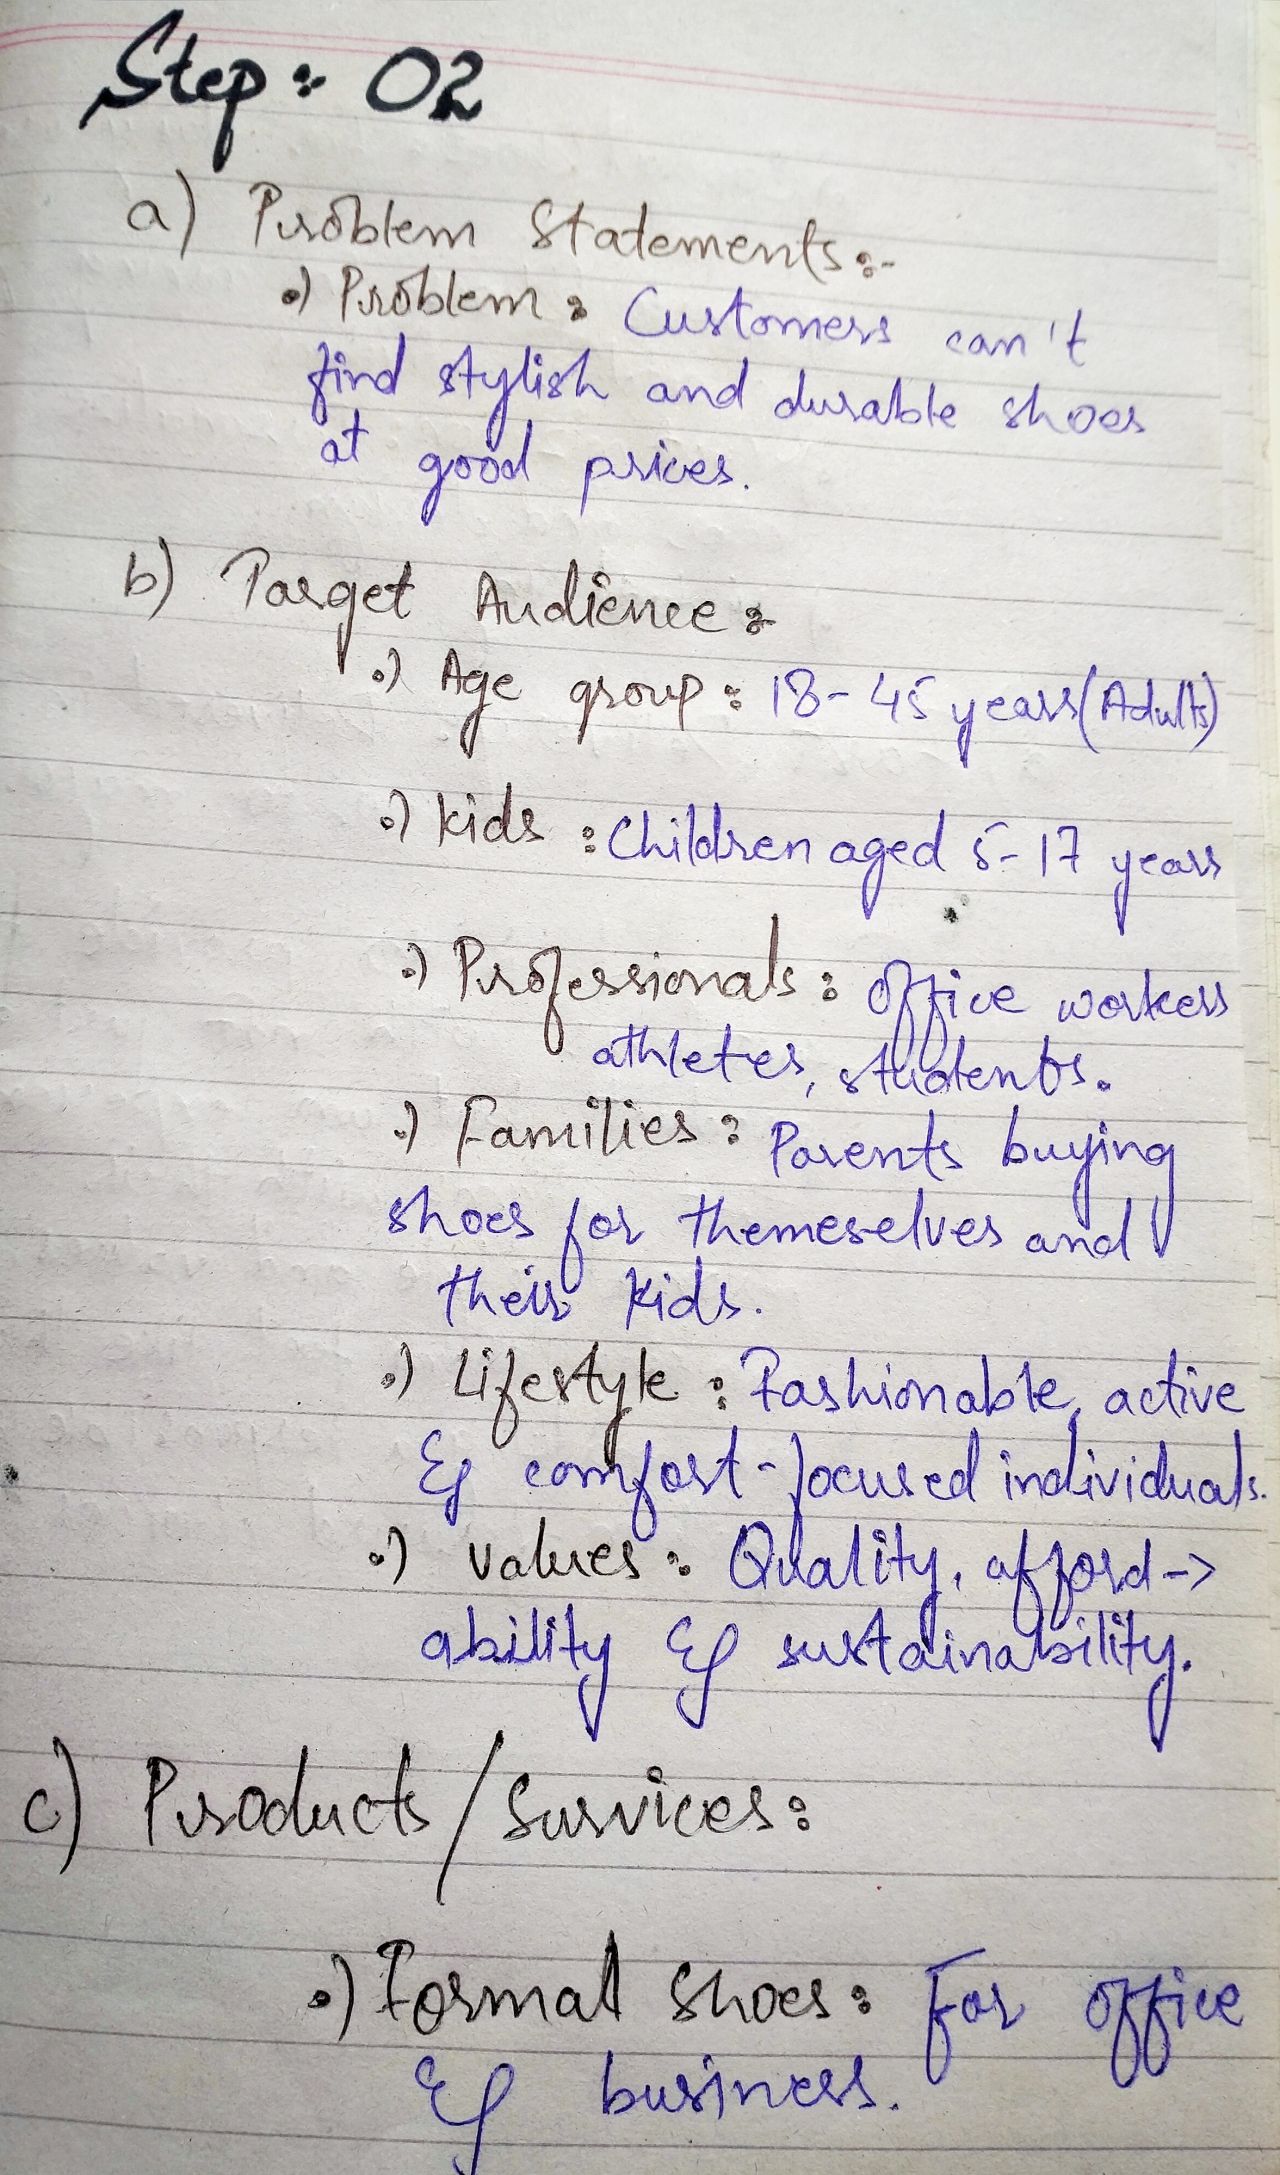 Step: 02
a) Problem Statements:-
•) Problem: Customers can't
find stylish and durable shoes
at good prices.
b) Target Audience:-
•) Age group: 18-45 years (Adults)
•) kids: Children aged 5-17 years
•) Professionals: office workers
athletes, students.
•) Families: Parents buying
shoes for themeselves and
their kids.
•) Lifestyle: Fashionable, active
& comfort-focused individuals.
•) values: Quality, afford->
ability & sustainability.
c) Products/Survices:
•) Formal Shoes: For office
& business.